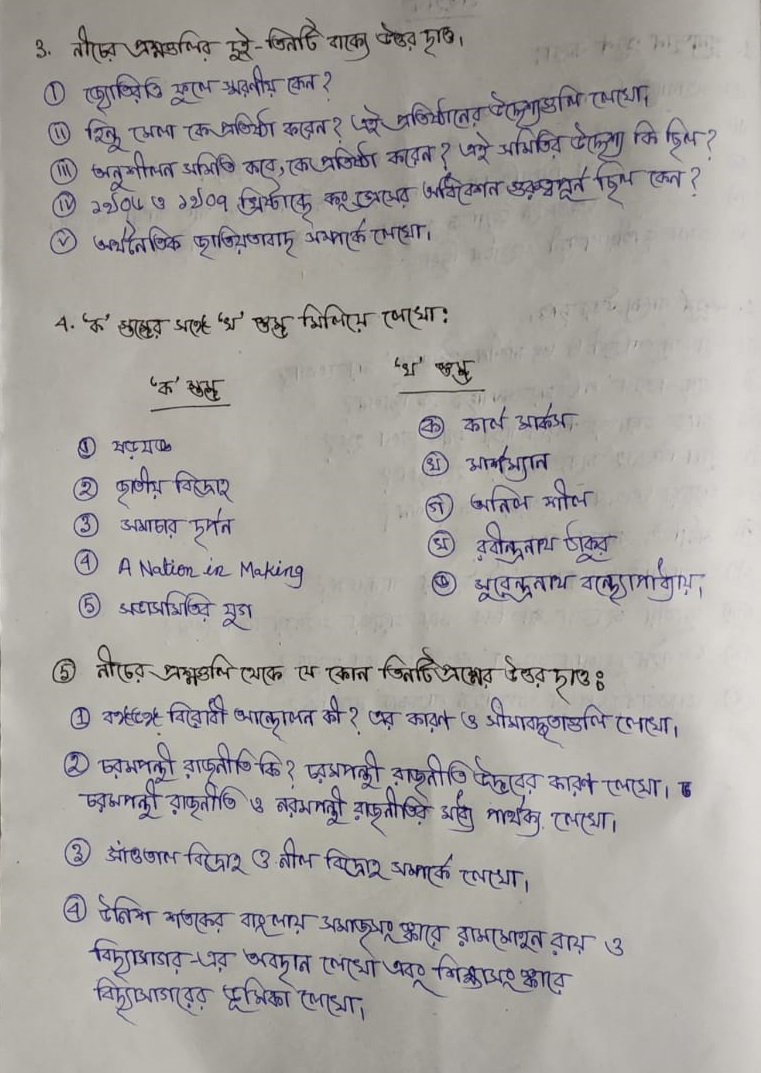 3. নীচের প্রশ্নগুলির দুই-তিনটি বাক্যে উত্তর দাও।
① জ্যোতিরাও ফুলে স্মরণীয় কেন?
⑪ হিন্দু মেলা কে প্রতিষ্ঠা করেন? এই প্রতিষ্ঠানের উদ্দেশ্যগুলি লেখো।
⑪I অনুশীলন সমিতি কবে, কে প্রতিষ্ঠা করেন? এই সমিতির উদ্দেশ্য কি ছিল?
IV ১৯০৬ ও ১৯০৭ খ্রিস্টাব্দে কংগ্রেসের অধিবেশন গুরুত্বপূর্ন ছিল কেন?
V অর্থনৈতিক জাতিয়তাবাদ সম্পর্কে লেখো।
4. 'ক' স্তম্ভের সঙ্গে 'খ' স্তম্ভ মিলিয়ে লেখো:
'ক' স্তম্ভ
'খ' স্তম্ভ
① ষড়যন্ত্র
② জাতীয় বিদ্রোহ
③ সমাচার দর্পন
④ A Nation in Making
⑤ সভাসমিতির যুগ
ক কার্ল মার্কস
খ মার্শম্যান
গ অনিল শীল
ঘ রবীন্দ্রনাথ ঠাকুর
ঙ সুরেন্দ্রনাথ বন্দ্যোপাধ্যায়।
⑤ নীচের প্রশ্নগুলি থেকে যে কোন তিনটি প্রশ্নের উত্তর দাও:
① বঙ্গভঙ্গ বিরোধী আন্দোলন কী? এর কারণ ও সীমাবদ্ধতাগুলি লেখো।
② চরমপন্থী রাজনীতি কি? চরমপন্থী রাজনীতি উদ্ভবের কারণ লেখো।
চরমপন্থী রাজনীতি ও নরমপন্থী রাজনীতির মধ্যে পার্থক্য লেখো।
③ সাঁওতাল বিদ্রোহ ও নীল বিদ্রোহ সম্পর্কে লেখো।
④ উনিশ শতকের বাংলায় সমাজসংস্কারে রামমোহন রায় ও
বিদ্যাসাগর-এর অবদান লেখো এবং শিক্ষাসংস্কারে
বিদ্যাসাগরের ভূমিকা লেখো।